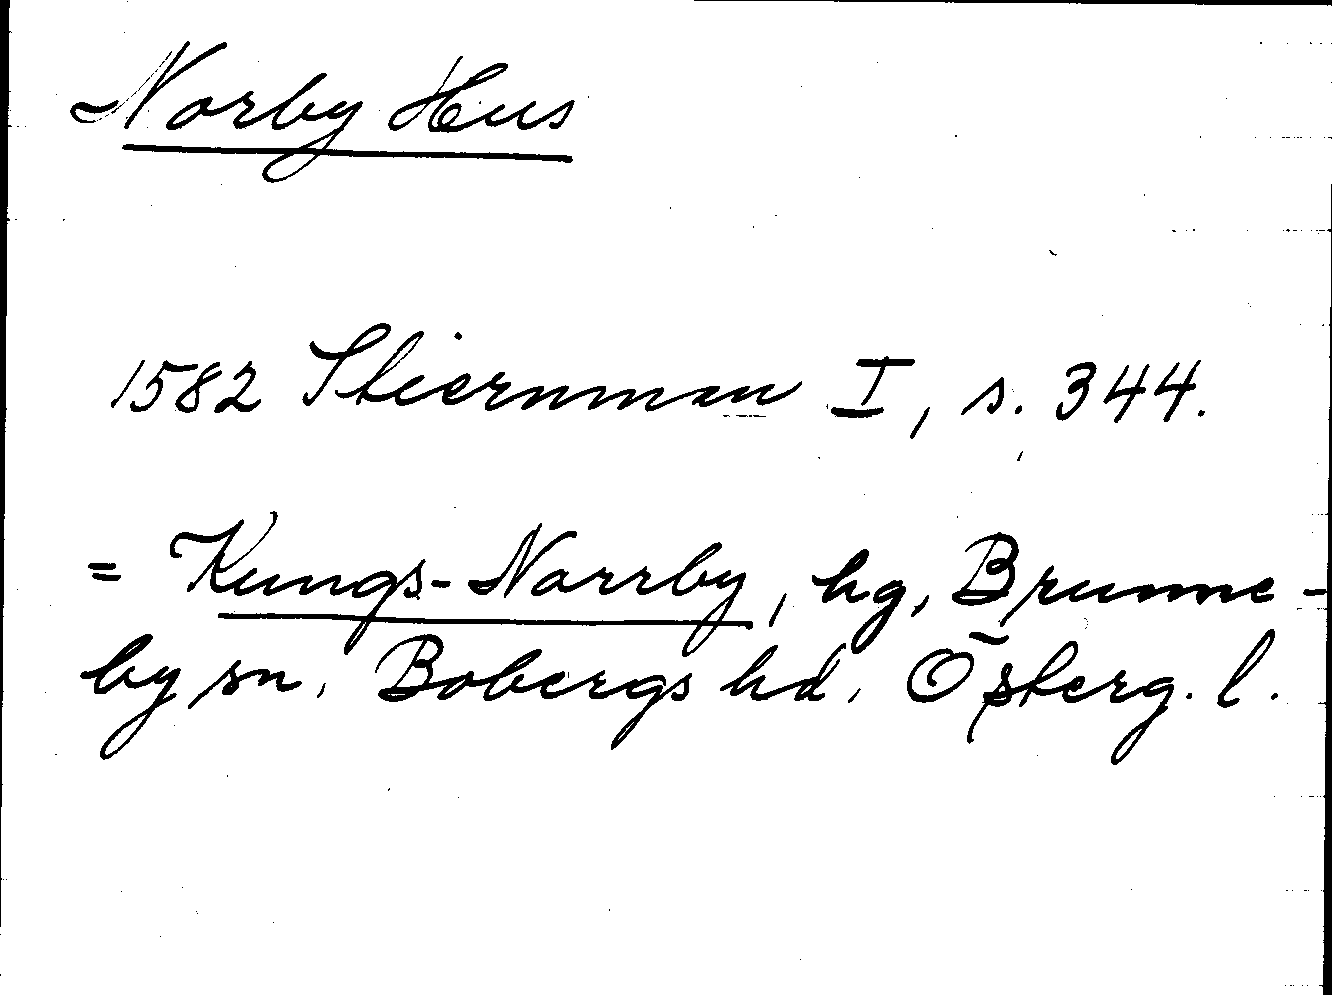 Norby Hus
1582 Stiernman I, s. 344.
= Kungs-Norrby, hg, Brunne-
by sn, Bobergs hd, Österg. l.